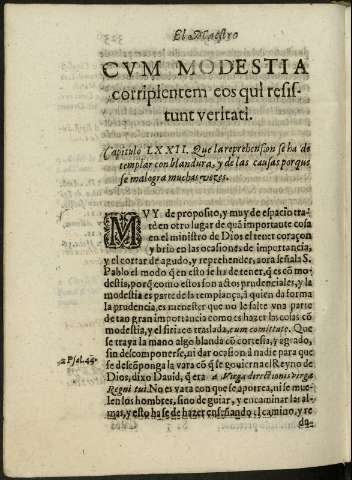 El Maestro
CVM MODESTIA
corripientem eos qui resis-
tunt veritati.
Capitulo LXXII. Que la reprehension se ha de
templar con blandura, y de las causas porque
se malogra muchas vezes.
MVY de proposito, y muy de espacio tra-
té en otro lugar de quã importante cosa
en el ministro de Dios el tener coraçon
y brio en las ocasiones de importancia,
y el cortar de agudo, y reprehender, aora señala S.
Pablo el modo q̃ en esto se ha de tener, q̃ es cõ mo-
destia, porq̃ como estos son actos prudenciales, y la
modestia es parte de la templança, à quien da forma
la prudencia, es menester que no le falte vna parte
de tan gran importancia como es hazer las cosas cõ
modestia, y el siriaco traslada, cum comitate. Que
se traya la mano algo blanda cõ cortesia, y agrado,
sin descomponerse, ni dar ocasion à nadie para que
se descõponga la vara cõ q̃ se govierna el Reyno de
2 Psal. 44.
Dios, dixo Dauid, q̃ era a Virga directionis virga
Regni tui. No es vara con que se aporrea, ni se mue-
len los hombres, sino de guiar, y encaminar las al-
mas, y esto ha se de hazer enseñando el camino, y re
du-